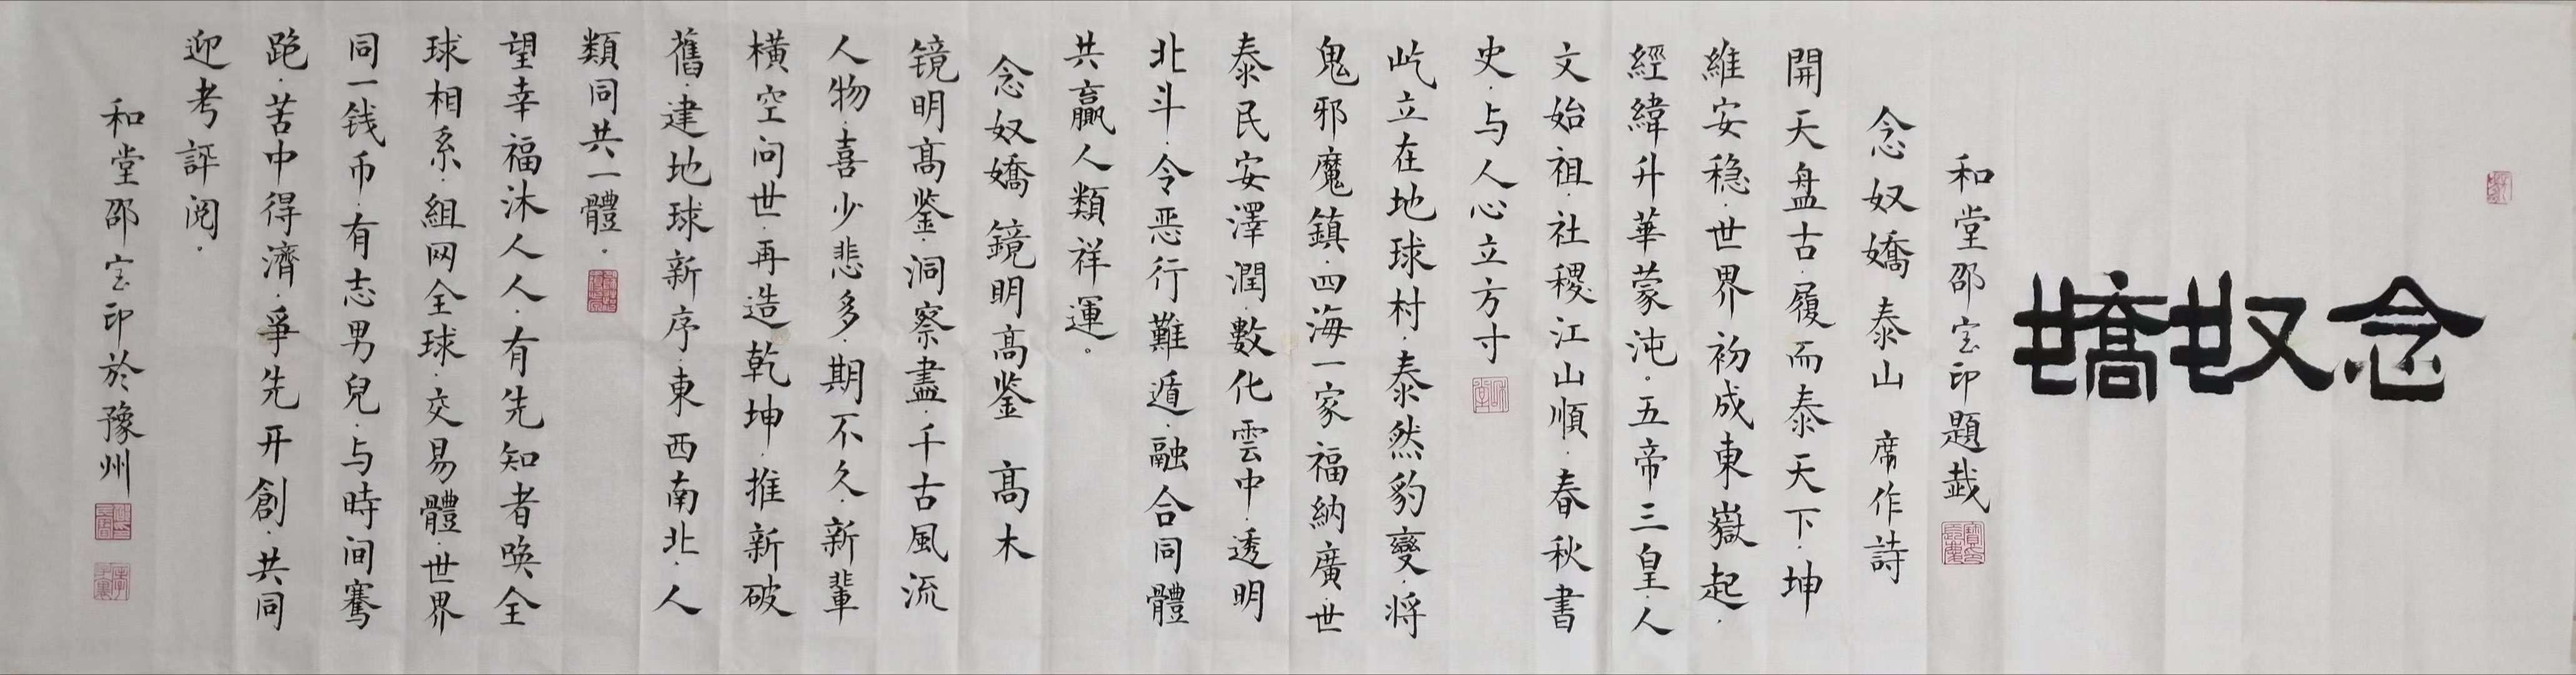 念奴嬌
和堂邵宝印題哉
念奴嬌 泰山 席作詩
開天盘古.履而泰天天下.坤
維安稳.世界初成東嶽起.
經緯升華蒙沌.五帝三皇.人
文始祖.社稷江山順.春秋書
史.与人心立方寸
屹立在地球村.泰然豹變.将
鬼邪魔鎮.四海一家福納廣.世
泰民安澤潤.數化雲中.透明
北斗.令恶行難遁.融合同體
共贏人類祥運。
念奴嬌 鏡明高鉴 高木
镜明高鉴.洞察盡.千古風流
人物.喜少悲多.期不久.新輩
横空问世.再造乾坤.推新破
舊.建地球新序.東西南北.人
類同共一體.
望幸福沐人人.有先知者唤全
球相系.組网全球.交易體.世界
同一钱币.有志男兒.与時间騫
跪.苦中得濟.爭先开創.共同
迎考評阅.
和堂邵宝印於豫州